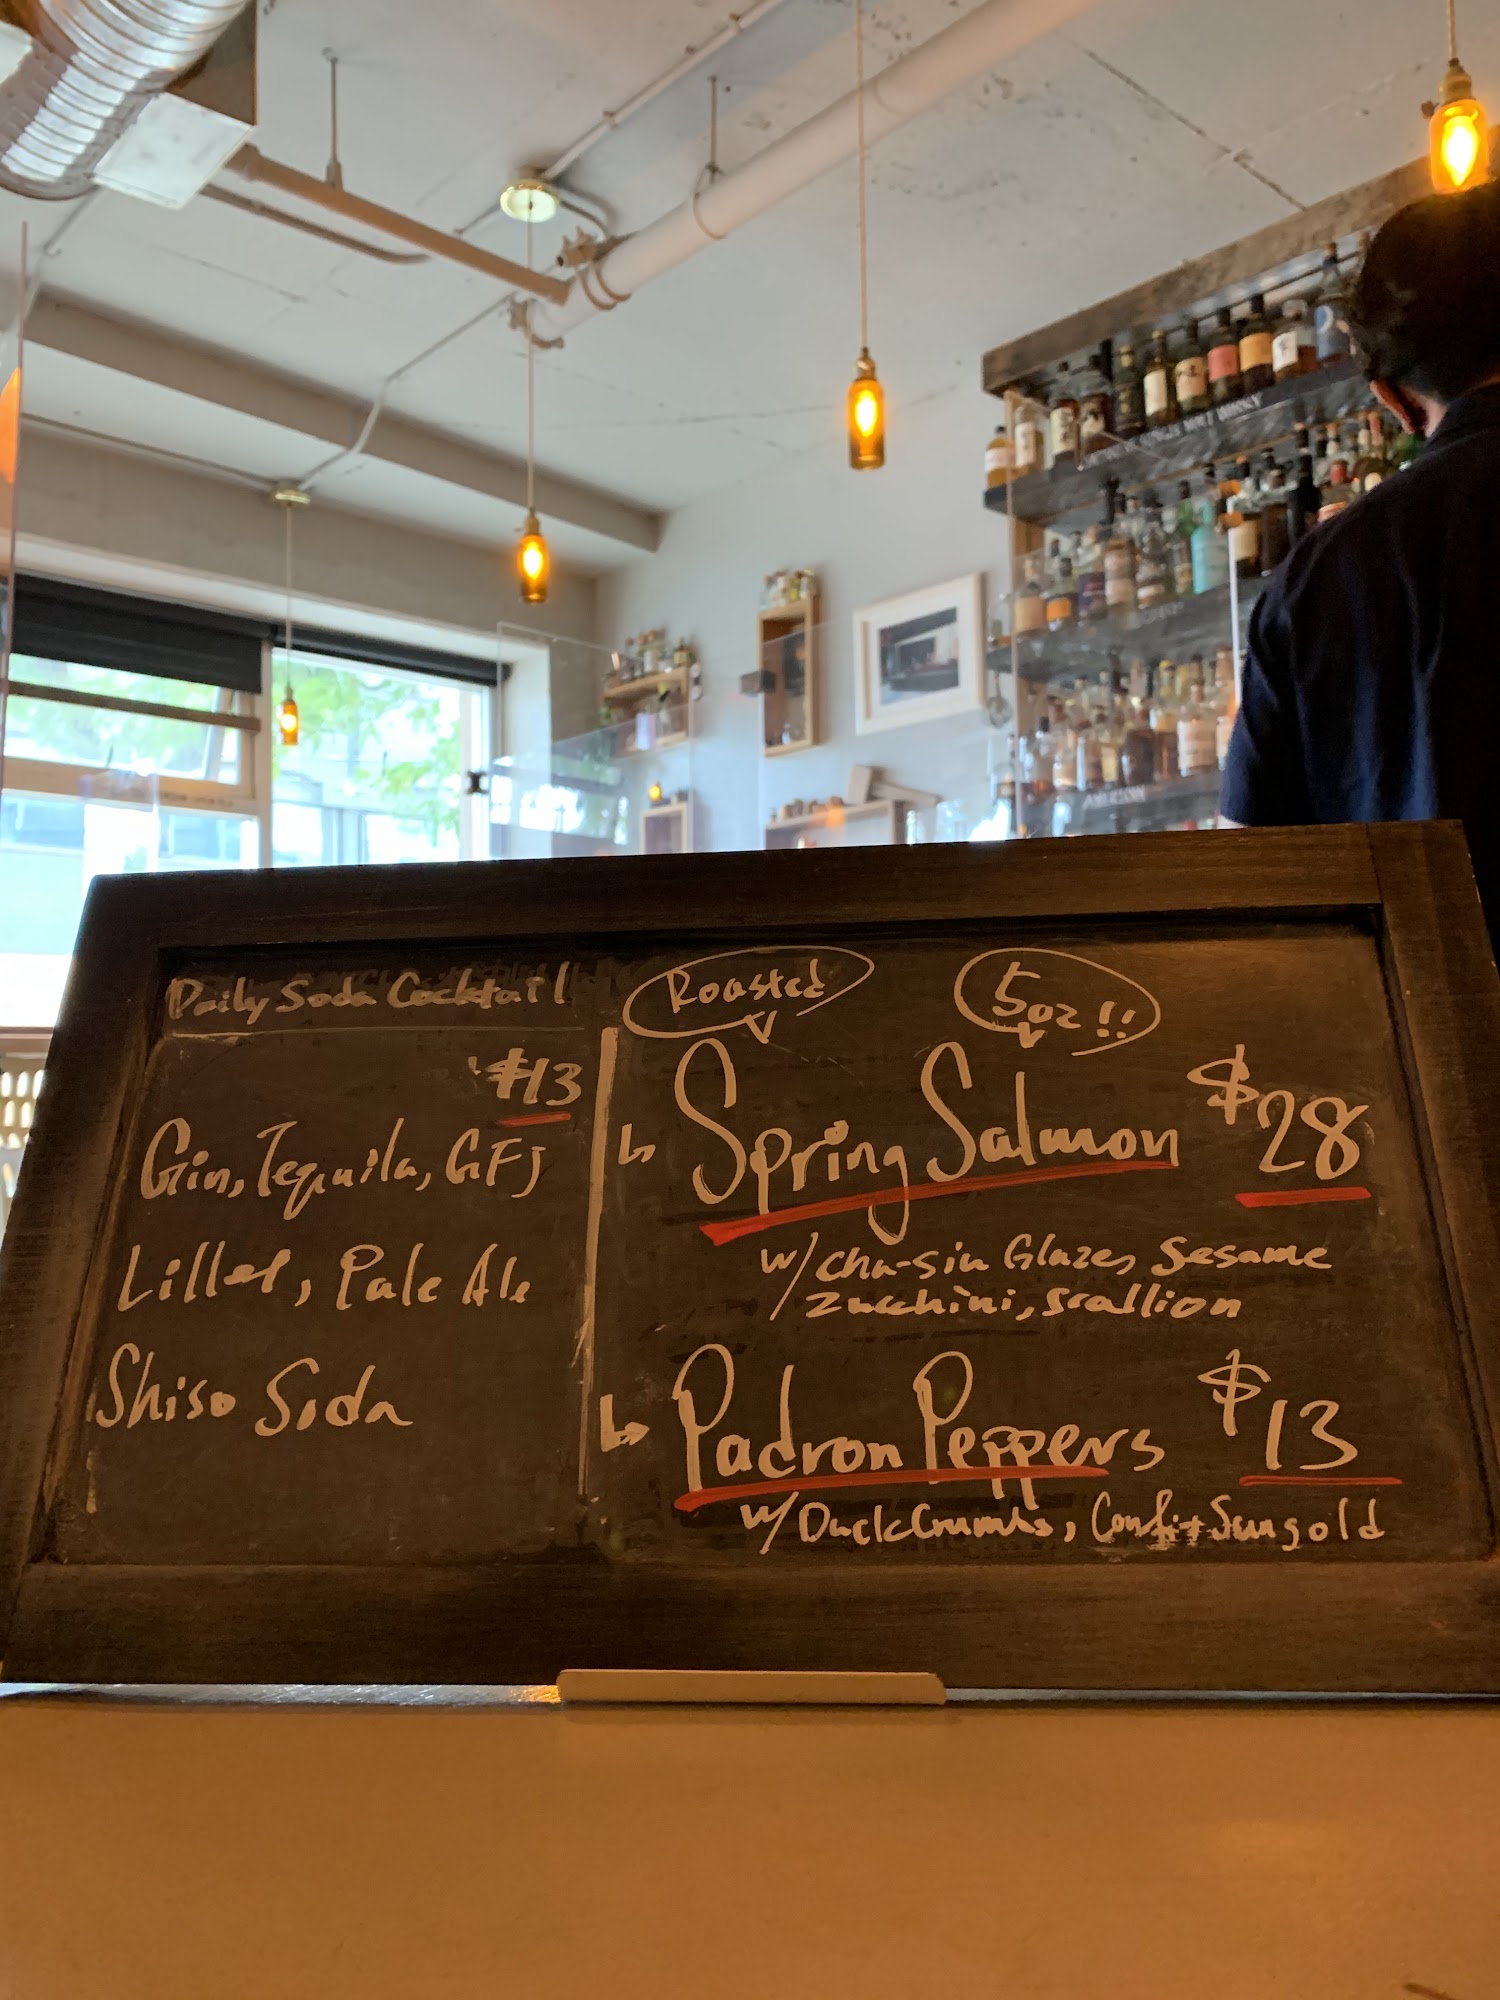 Daily Soda Cocktail
$13
Gin, Tequila, GFJ
Lillet, Pale Ale
Shiso Soda
Roasted
5oz!!
Spring Salmon $28
w/ cha-siu Glaze, Sesame
Zucchini, scallion
Padron Peppers $13
w/ Duck Crumbs, Confit Sungold